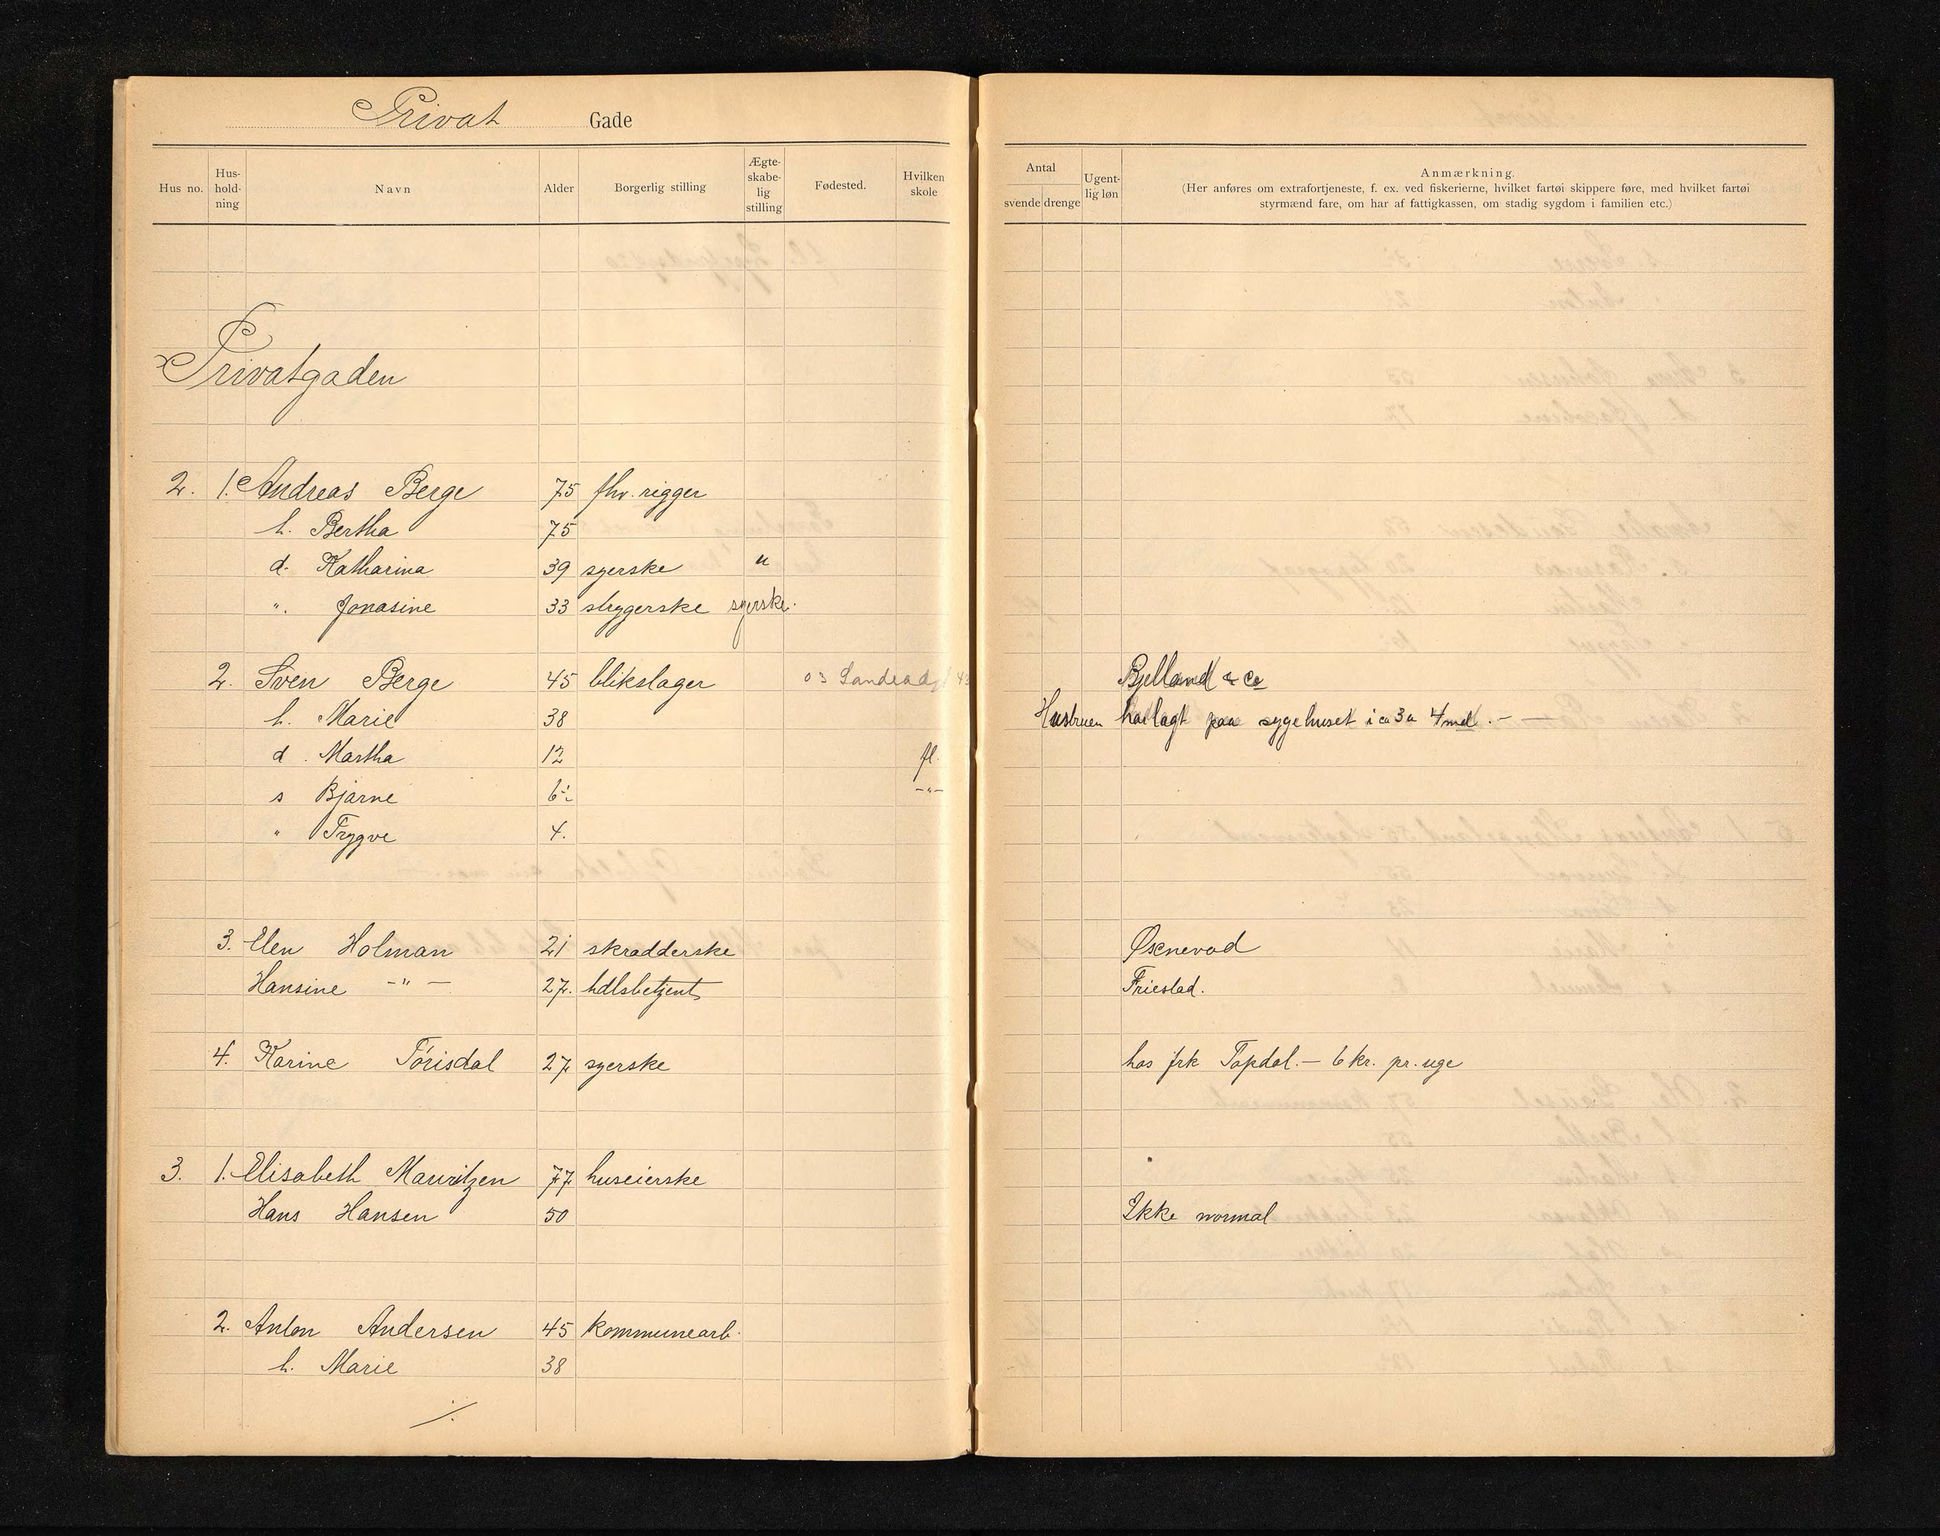 Privat Gade
Hus no. Hus-hold-ning Navn Alder Borgerlig stilling Ægte-skabe-lig stilling Fødested. Hvilken skole
Antal svende drenge Ugent-lig løn Anmærkning.
(Her anføres om extrafortjeneste, f. ex. ved fiskerierne, hvilket fartøi skippere føre, med hvilket fartøi
styrmænd fare, om har af fattigkassen, om stadig sygdom i familien etc.)
Privatgaden
2. 1. Andreas Berge 75 fhv. rigger
h. Bertha 75
d. Katharina 39 syerske "
". Jonasine 33 strygerske syerske.
2. Sven Berge 45 blikslager 03 Bjelland & Co
h. Marie 38 Hustruen har lagt paa sygehuset i ca 3 a 4 md. - —
d. Martha 12 fl.
s Bjarne 6½ -"-
" Trygve 4.
3. Elen Holman 21 skradderske Øsenevad
Hansine -"- 27. hdlsbetjent Friestad.
4. Karine Tórisdal 27 syerske hos frk Topdal. — 6 kr. pr. uge
3. 1. Elisabeth Mauritzen 77 huseierske
Hans Hansen 50 Ikke normal
2. Anton Andersen 45 kommunearb.
h. Marie 38
./.